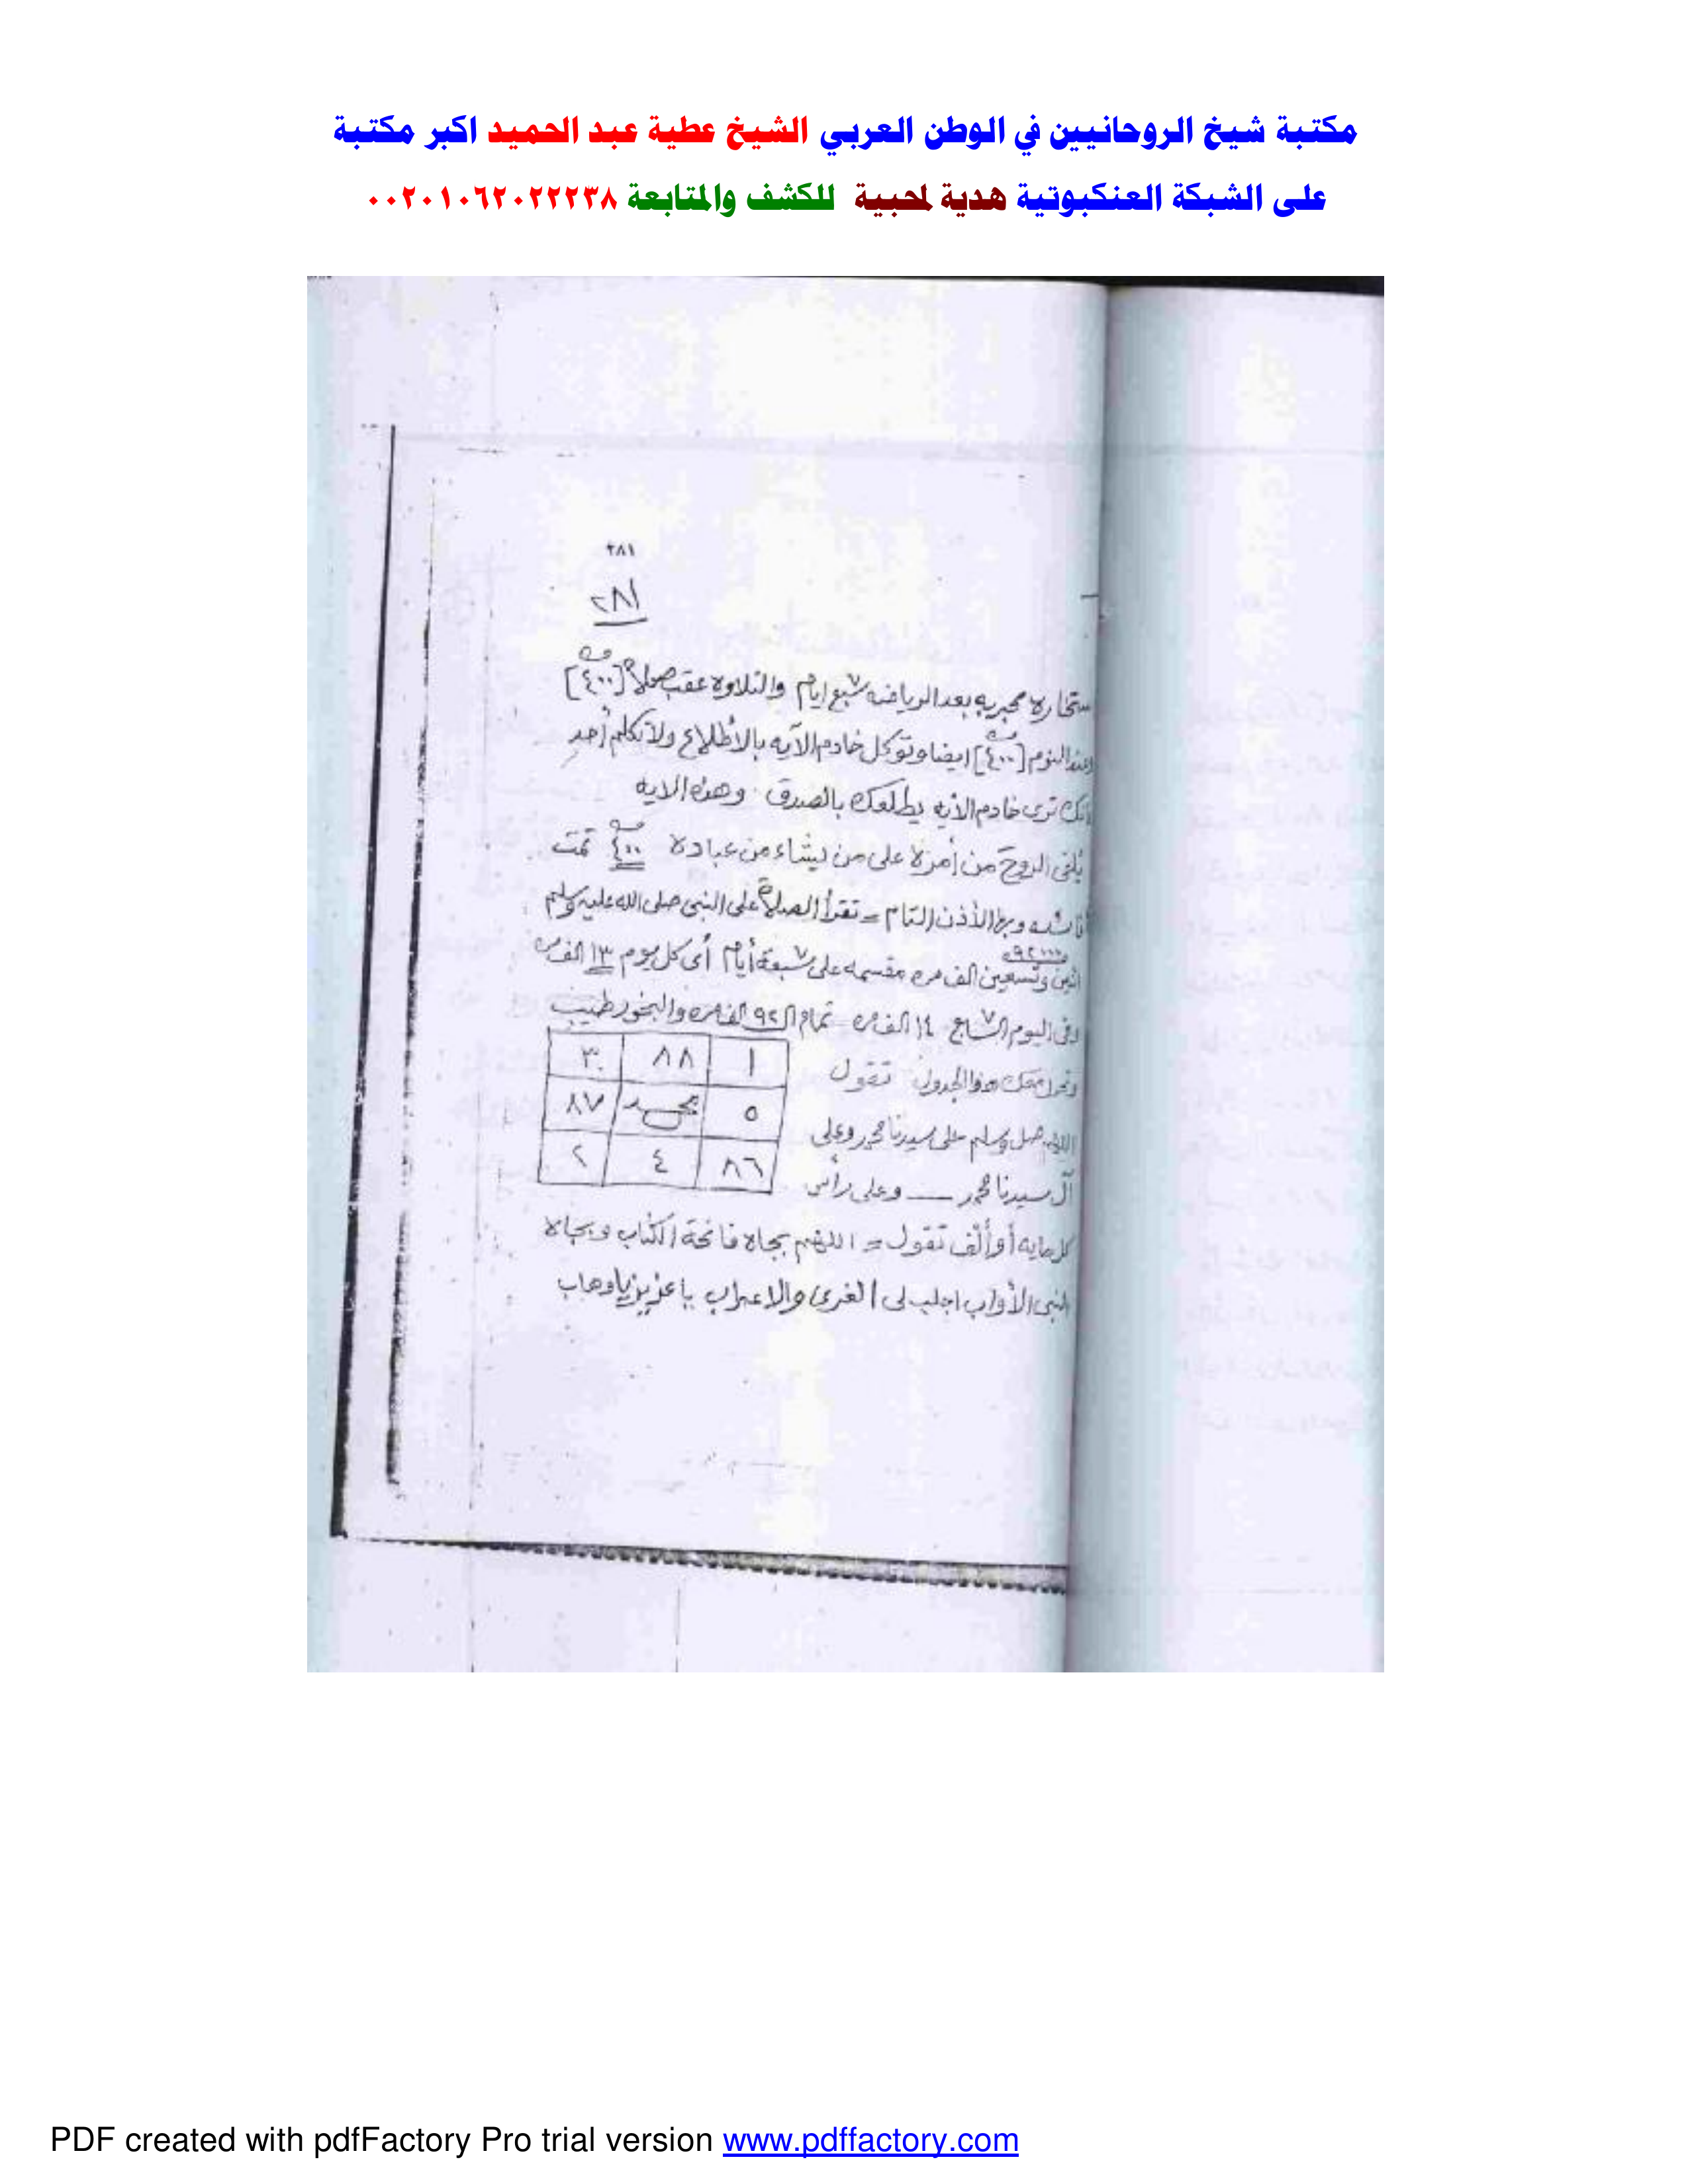 مكتبة شيخ الروحانيين في الوطن العربي الشيخ عطية عبد الحميد اكبر مكتبة
على الشبكة العنكبوتية هدية لمحبية للكشف والمتابعة ٠٠٢٠١٠٦٢٠٢٢٢٣٨
٢٨١
٢٨١
ستخاره مجربه بعد الرياضه سبع ٧ ايام والتلاوه عقب صلاة [٤٠٠]
وعند النوم [٤٠٠] ايضا وتوكل خادم الآيه بالأطلاع ولا تكلم أحد
ترى خادم الآيه يطلعك بالصدق وهذه الايه
يُلقى الروحَ من أمره على من يشاء من عباده ٤٠٠ تمت
الأذن التام = تقرأ الصلاة على النبى صلى الله عليه وسلم
٩٢٠٠٠
اثنين وتسعين الف مره مقسمه على سبعة ٧ أيام أى كل يوم ١٣ الف مره
وفى اليوم السابع ٧ ١٤ الف مره تمام الـ ٩٢ الف مره والبخور طيب
معك هذا الجدول تقول
١ ٨٨ ٣
٥ محمد ٨٧
٨٦ ٤ ٢
اللهم صل وسلم على سيدنا محمد وعلى
آل سيدنا محمد — وعلى رأس
كل مايه أو ألف تقول = اللهم بجاه فاتحة الكتاب وبجاه
النبى الأواب اجلب لى والاعراب يا عزيز يا وهاب
PDF created with pdfFactory Pro trial version www.pdffactory.com